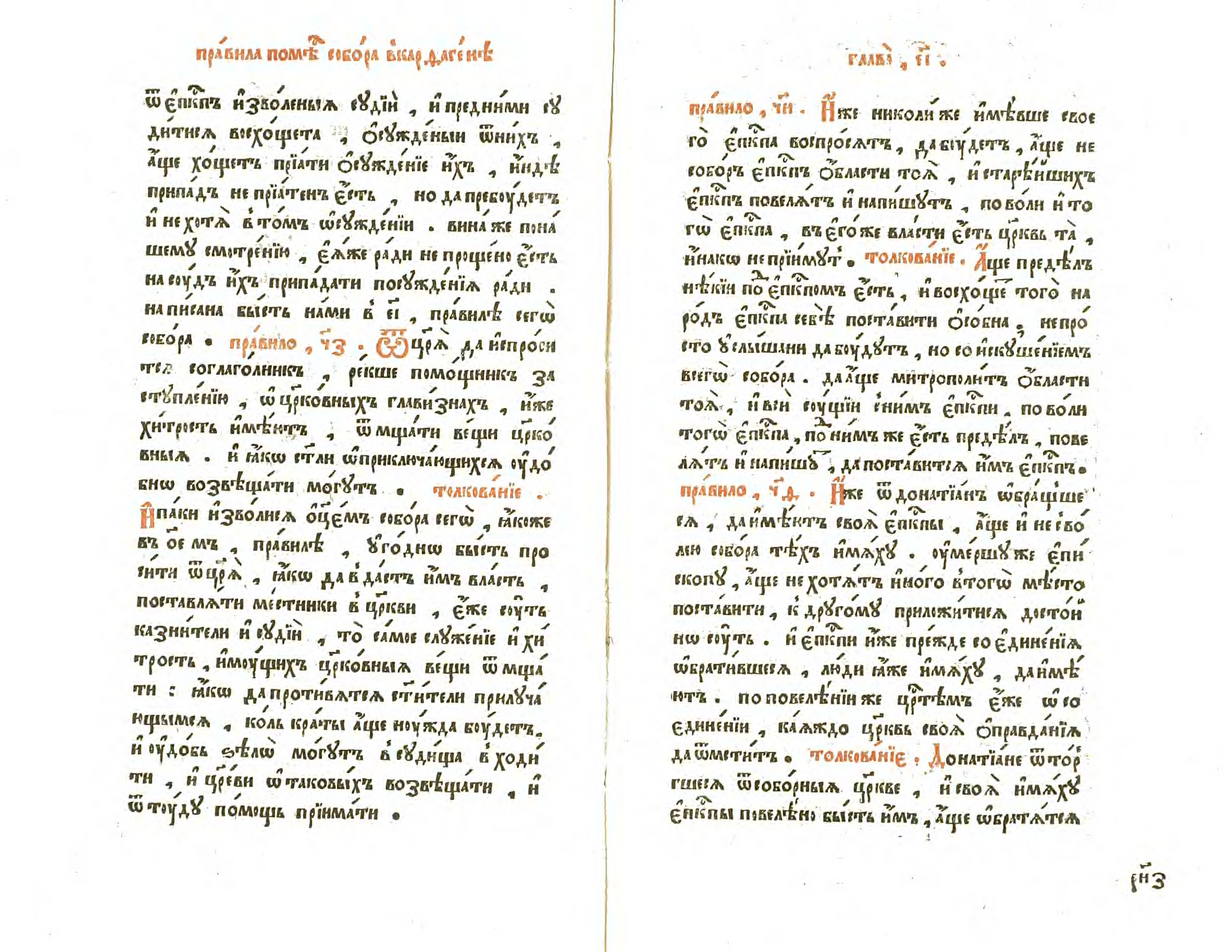 пра́вила помѣ́ⷭ҇ собо́ра вкарѳаге́нѣ
ѿ є҆пⷭ҇кпъ и҆зволе́ныѧ сꙋдїи̑ , и҆ пре́дними сꙋ
ди́тисѧ восхо́щета , ѻ҆сꙋжде́ныи ѿни́хъ ,
а҆́ще хо́щетъ прїѧ́ти ѻ҆сꙋжде́нїе и҆́хъ , и҆́ндѣ
припа́дъ не прїѧ́тенъ є҆́сть , но да пребоу́детъ
и҆ не хотѧ̀ в то́мъ ѡ҆сꙋжде́нїи . вина́ же пона́
шемꙋ смотре́нїю , є҆ѧ́же ра́ди не проще́но є҆́сть
на соу́дъ и҆́хъ припа́дати посꙋжде́нїѧ ра́ди .
написана бы́сть на́ми в є҃і , пра́вилѣ сегѡ̀
собо́ра . пра́вило , ч҃з . Ѿ цр҃ѧ̀ да и҆спроси
тсѧ соглаго́лникъ , ре́кше помо́щникъ за
стꙋпле́нїю , ѡ҆ цр҃ко́вныхъ глави́знахъ , и҆́же
хи́трость и҆мѣ́ютъ , ѿ мща́ти ве́щи цр҃ко́
вныѧ . и҆ ꙗ҆́кѡ ст҃ли ѡ҆приключа́ющихсѧ оу҆до́
бнѡ возвѣща́ти мо́гꙋтъ . толкова́нїе .
И҆ па́ки и҆зво́лисѧ ѻ҆ц҃е́мъ собо́ра сегѡ̀ , ꙗ҆́коже
въ ѻ҆се́ мъ , пра́вилѣ , ᲂу҆го́днѡ бы́сть про
си́ти ѿ цр҃ѧ̀ , ꙗ҆́кѡ да в да́стъ и҆̀мъ вла́сть ,
поставлѧ́ти ме́стники в цр҃кви , є҆́же соу́ть
казни́тели и҆ сꙋдїи̑ , то̀ са́мое слꙋже́нїе и҆ хи́
трость , и҆мꙋ́щихъ цр҃ко́вныѧ ве́щи ѿ мща́
ти : ꙗ҆́кѡ да проти́вѧтсѧ ст҃и́тели прилꙋча́
ющымсѧ , ко́ль кра́ты а҆́ще ноу́жда боу́детъ .
и҆ оу҆до́бь ѕѣлѡ̀ мо́гꙋтъ в сꙋди́ща в ходи́
ти , и҆ цр҃е́ви ѡ҆ таковы́хъ возвѣща́ти , и҆
ѿ тоу́дꙋ по́мощь прїима́ти .
глава̀ , є҃і .
пра́вило , ч҃и . И҆́же николи́ же и҆мѣ́вше свое
го̀ є҆пⷭ҇кпа воспро́сѧтъ , да боу́детъ , а҆́ще не
собо́ръ є҆пⷭ҇кпъ ѻ҆́бласти тоѧ̀ , и҆ старѣ́йшихъ
є҆пⷭ҇кпъ повелѧ́тъ и҆ напи́шꙋтъ , по во́ли и҆ то
гѡ̀ є҆пⷭ҇кпа , въ є҆го́ же вла́сти є҆́сть цр҃квь та̀ ,
и҆на́кѡ не прїи́мꙋт . толкова́нїе . А҆́ще преде́лъ
нѣ́кїи по є҆пⷭ҇кпомъ є҆́сть , и҆ восхо́щеⷮ того̀ на
ро́дъ є҆пⷭ҇кпа себѣ̀ поста́вити ѻ҆со́бна , непро́
сто ᲂу҆слы́шани да боу́дꙋтъ , но со и҆скꙋше́нїемъ
всегѡ̀ собо́ра . да а҆́ще митрополи́тъ ѻ҆́бласти
тоѧ̀ , и҆ всѝ соу́щїи с ни́мъ є҆пⷭ҇кпи , по во́ли
тогѡ̀ є҆пⷭ҇кпа , по ни́мъ же є҆́сть преде́лъ , пове
лѧ́тъ и҆ напи́шꙋⷮ , да поста́витсѧ и҆̀мъ є҆пⷭ҇кпъ .
пра́вило , ч҃ѳ . И҆́же ѿ донатїа́нъ ѡ҆бра́щше
сѧ , да и҆мѣ́ютъ своѧ̀ є҆пⷭ҇кпы , а҆́ще и҆ не сво́
лею собо́ра тѣ́хъ и҆мѧ́хꙋ . оу҆ме́ршꙋ же є҆пи́
скопꙋ , а҆́ще не хотѧ́тъ и҆но́го втогѡ̀ мѣ́сто
поста́вити , к дрꙋго́мꙋ приложи́тисѧ досто́й
нѡ соу́ть . и҆ є҆пⷭ҇кпи и҆́же пре́жде со є҆дине́нїѧ
ѡ҆брати́вшеесѧ , лю́ди ꙗ҆́же и҆мѧ́хꙋ , да и҆мѣ́
ютъ . по повелѣ́нїи же цр҃тѣмъ є҆́же ѡ҆ со
є҆дине́нїи , ка́ѧждо цр҃квь своѧ̀ ѻ҆правда́нїѧ
да ѿмети́тъ . толкова́нїе . Донатїа́не ѿто́р
гшеесѧ ѿсобо́рныѧ цр҃кве , и҆ своѧ̀ и҆мѧ́хꙋ
є҆пⷭ҇кпы повелѣ́но бы́сть и҆̀мъ , а҆́ще ѡ҆братѧ́тсѧ
рн҃з